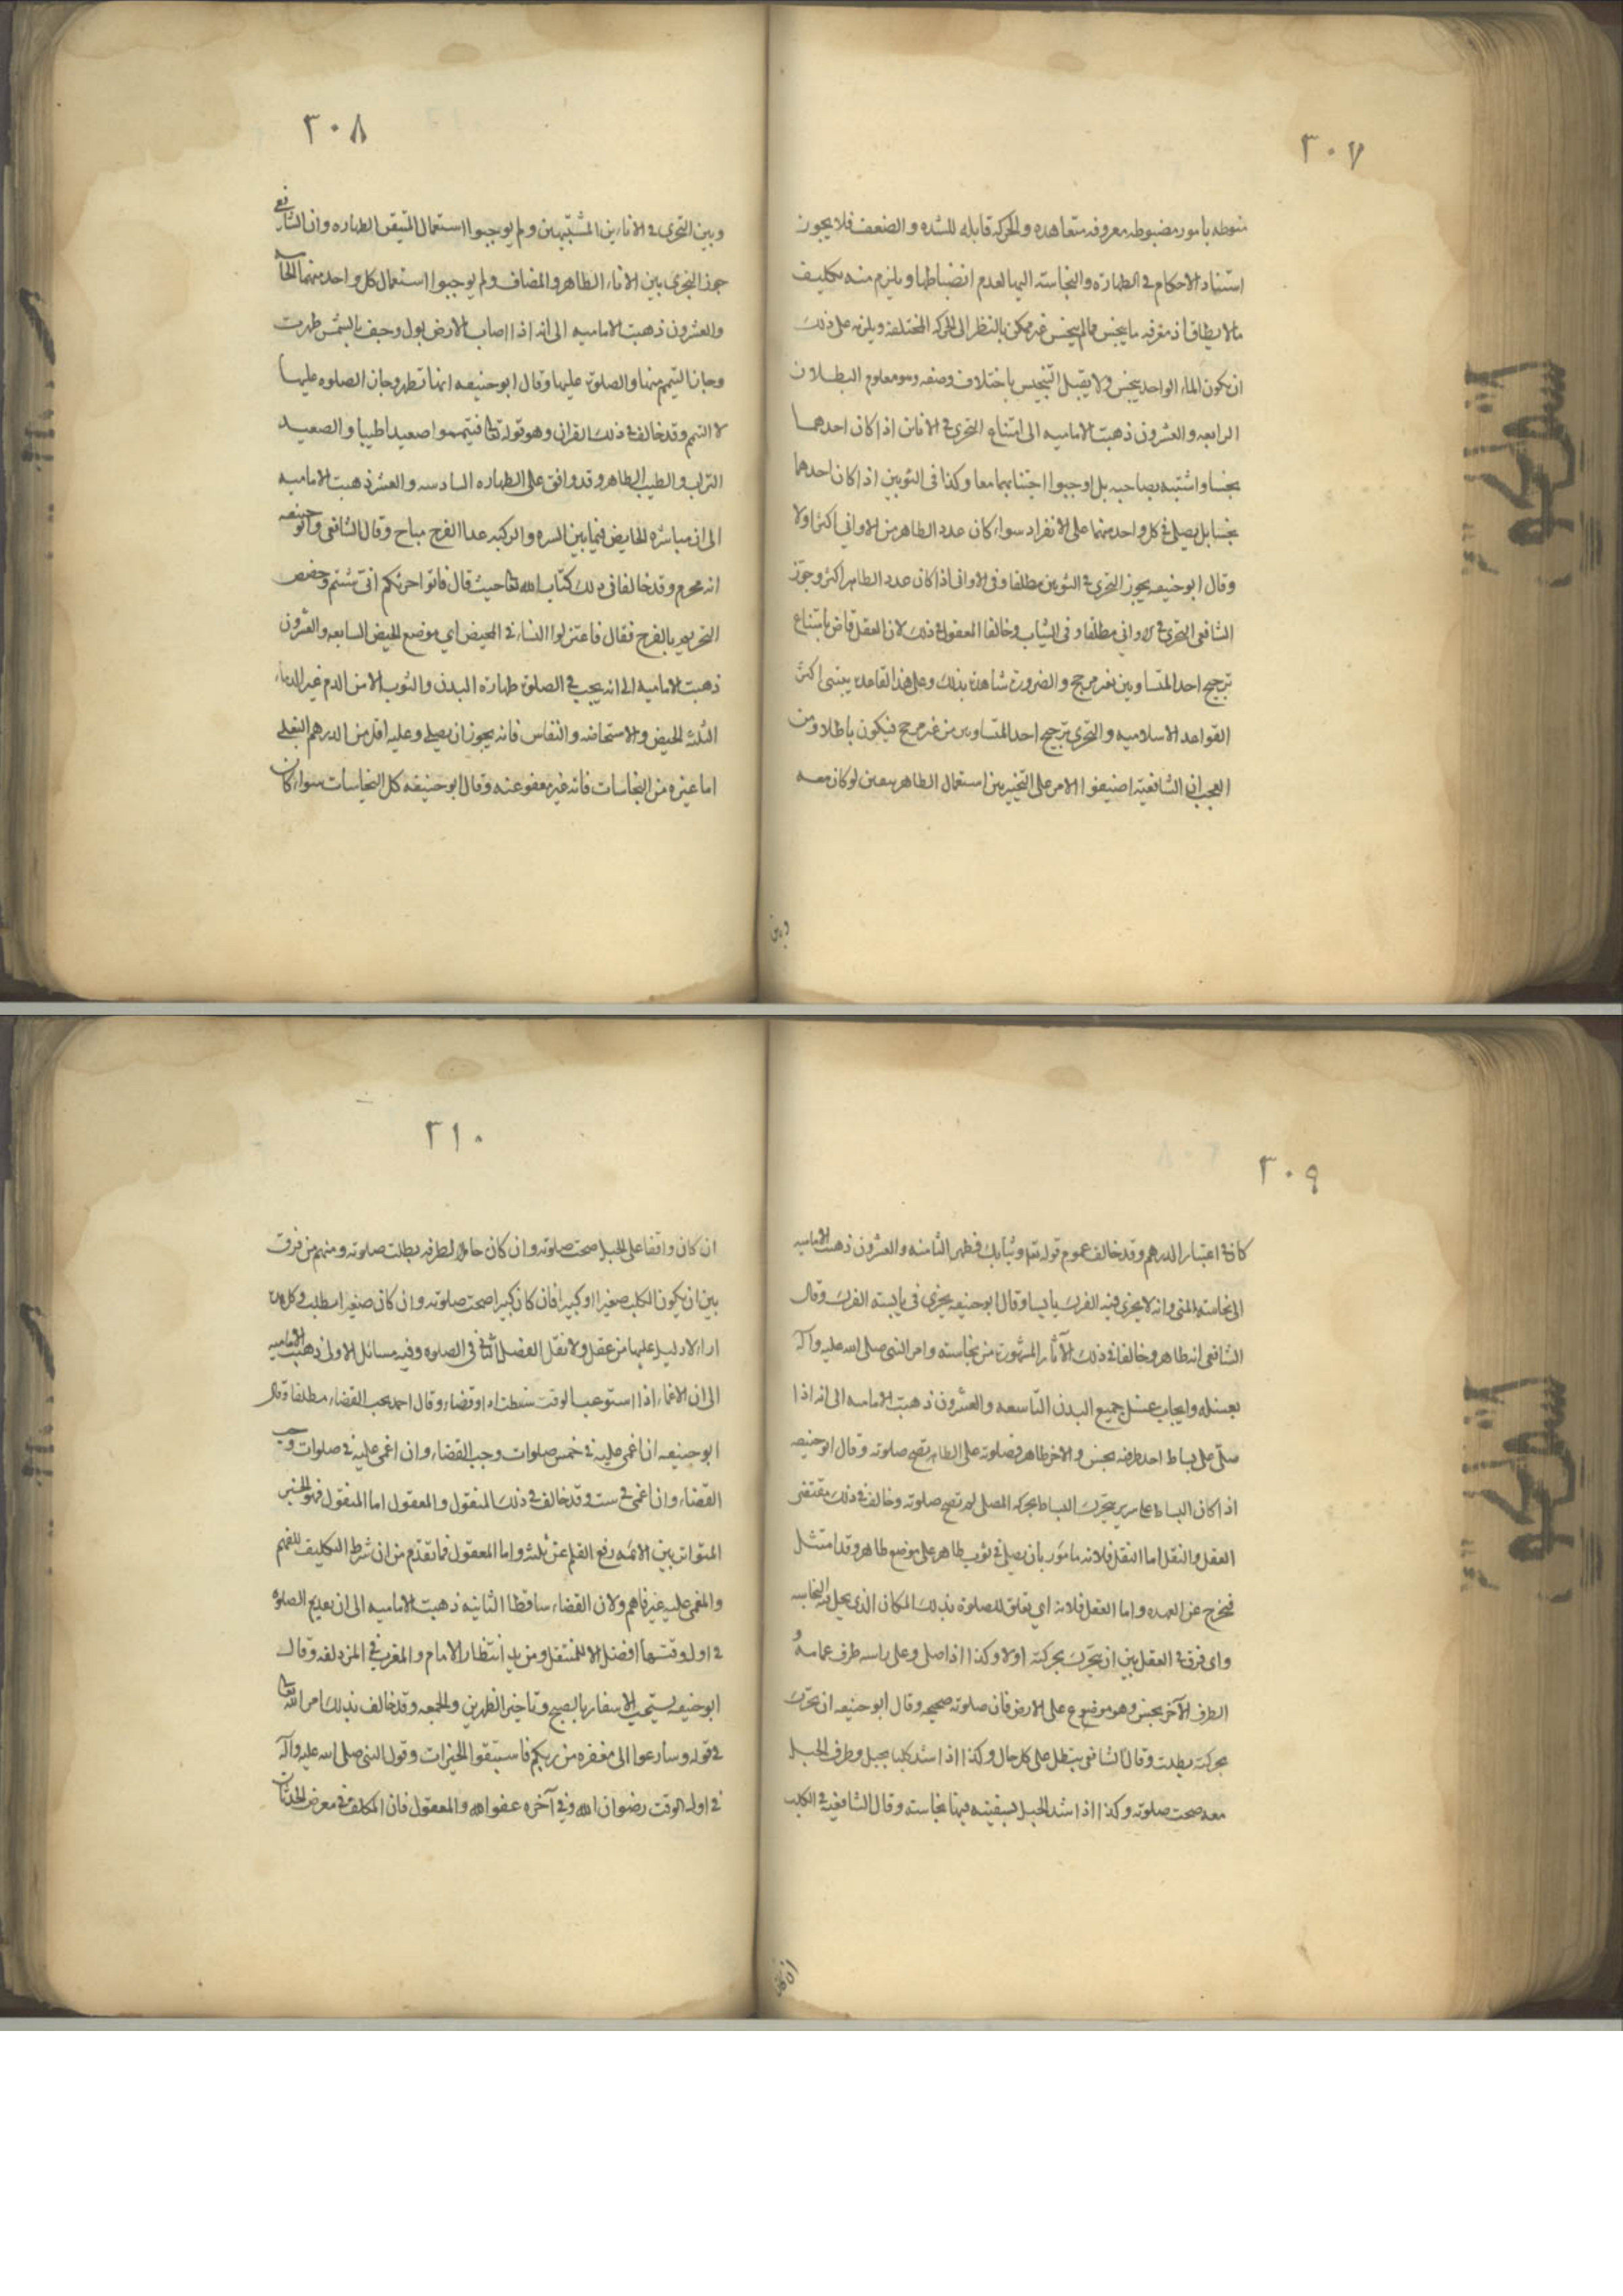 ٣٠٧
منوطه بامور مضبوطه معروفه متعاهده والحركه قابله للشده والضعف فلا يجوز
استناد الاحكام في الطهارة والنجاسة اليها لعدم انضباطها ويلزم منه تكليف
مالا يطاق اذ معرفه ما ينجس مما لم ينجس غير ممكن بالنظر الى الحركه المختلفه ويلزمه على ذلك
ان يكون الماء الواحد ينجس ولا يقبل التنجيس باختلاف وصفه وهو معلوم البطلان
الرابعه والعشرون ذهبت الاماميه الى امتناع التحري في الانائين اذا كان احدهما
نجسا واشتبه بصاحبه بل اوجبوا اجتنابهما معا وكذا في الثوبين اذا كان احدهما
نجسا بل يصلي في كل واحد منهما على الانفراد سواء كان عدد الطاهر من الاواني اكثر اولا
وقال ابو حنيفه يجوز التحري في الثوبين مطلقا وفي الاواني اذا كان عدد الطاهر اكثر وجوز
الشافعي التحري في الاواني مطلقا وفي الثياب وخالفا المعقول في ذلك لان العقل قاض بامتناع
ترجيح احد المتساويين بغير مرجح والضرورة شاهدة بذلك وعلى هذا القاعدة يبتنى اكثر
القواعد الاسلاميه والتحري ترجيح احد المتساويين من غير مرجح فيكون باطلا ومن
العجب ان الشافعية اضيفوا الامر على التخيير بين استعمال الطاهر بيقين لو كان معه
وبين
٣٠٨
وبين التحري في الانائين المشتبهين ولم يوجبوا استعمال المتيقن الطهاره وان الشافعي
جوز التحري بين الاناء الطاهر والمضاف ولم يوجبوا استعمال كل واحد منهما الخامسة
والعشرون ذهبت الاماميه الى انه اذا اصاب الارض بول وجف بالشمس طهرت
وجاز التيمم منها والصلوة عليها وقال ابو حنيفه انها تطهر وجاز الصلوه عليها
لا التيمم وقد خالف في ذلك القران وهو قوله تعالى فتيمموا صعيدا طيبا والصعيد
التراب والطيب الطاهر وقد وافق على الطهاره السادسه والعشر ذهبت الاماميه
الى ان مباشرة الحايض فيما بين السره والركبه عدا الفرج مباح وقال الشافعي وابو حنيفه
انه محرم وقد خالفا في ذلك كتاب الله تعالى حيث قال فاتوا حرثكم انى شئتم وخصص
التحريم بالفرج فقال فاعتزلوا النساء في المحيض اي موضع الحيض السابعه والعشرون
ذهبت الاماميه الى انه يجب في الصلوة طهارة البدن والثوب الا من الدم غير الدماء
الثلثه الحيض والاستحاضه والنفاس فانه يجوز ان يصلي وعليه اقل من الدرهم البغلي
اما غيره من النجاسات فانه غير معفو عنه وقال ابو حنيفه كل النجاسات سواء كان
٣٠٩
كان في اعتبار الدرهم وقد خالف عموم قوله تعالى وثيابك فطهر الثامنه والعشرون ذهبت الاماميه
الى نجاسة المنى وانه لا يجزى فيه الفرك يابسا وقال ابو حنيفه يجزى في يابسه الفرك وقال
الشافعي انه طاهر وخالفا في ذلك الآثار المشهورة من نجاسته وامر النبي صلى الله عليه وآله
بغسله وايجاب غسل جميع البدن التاسعه والعشرون ذهبت الاماميه الى انه اذا
صلى على بساط احد طرفيه نجس والاخر طاهر وصلوته على الطاهر تصح صلوته وقال ابو حنيفه
اذا كان البساط على سرير يتحرك البساط بحركه المصلى لم تصح صلوته وخالف في ذلك مقتضى
العقل والنقل اما النقل فلانه مامور بان يصلي في ثوب طاهر على موضع طاهر وقد امتثل
فيخرج عن العهده واما العقل فلانه اي تعلق للصلوة بذلك المكان الذي يحل به النجاسه
واى فرق في العقل بين ان يتحرك بحركته اولا وكذا اذا صلى وعلى راسه طرف عمامة و
الطرف الآخر نجس وهو موضوع على الارض فان صلوته صحيحه وقال ابو حنيفه ان تحرك
بحركته بطلت وقال الشافعي يبطل على كل حال وكذا اذا شد كلبا بحبل وطرف الحبل
معه صحت صلوته وكذا اذا شد الحبل بسفينه فيها نجاسته وقال الشافعيه في الكلب
ان كان
٣١٠
ان كان واقفا على الحبل صحت صلوته وان كان حامل لطرفه بطلت صلوته ومنهم من فرق
بين ان يكون الكلب صغيرا او كبيرا فان كان كبيرا صحت صلوته وان كان صغيرا بطلت وكل هذه
اراء لا دليل عليها من عقل ولا نقل الفصل الثاني في الصلوه وفيه مسائل الاولى ذهبت الاماميه
الى ان الاغماء اذا استوعب الوقت سقطت اداء وقضاء وقال احمد يجب القضاء مطلقا وقال
ابو حنيفه ان اغمى عليه في خمس صلوات وجب القضاء وان اغمى عليه في صلوات وجب
القضاء وان اغمى في ست وقد خالف في ذلك المنقول والمعقول اما المنقول فهو الخبر
المتواتر بين الائمه رفع القلم عن ثلثه واما المعقول فما تقدم من ان شرط التكليف للفهم
والمغمى عليه غير فاهم ولان القضاء ساقط الثانيه ذهبت الاماميه الى ان تقديم الصلوة
في اول وقتها افضل الا للمتنفل ومن يريد انتظار الامام والمغرب في المزدلفه وقال
ابو حنيفه يستحب الاسفار بالصبح وتاخير الظهرين والجمعه وقد خالف بذلك امر الله تعالى
في قوله وسارعوا الى مغفره من ربكم فاستبقوا الخيرات وقول النبي صلى الله عليه وآله
في اول الوقت رضوان الله وفي آخره عفو الله والمعقول فان المكلف في معرض الحدثان